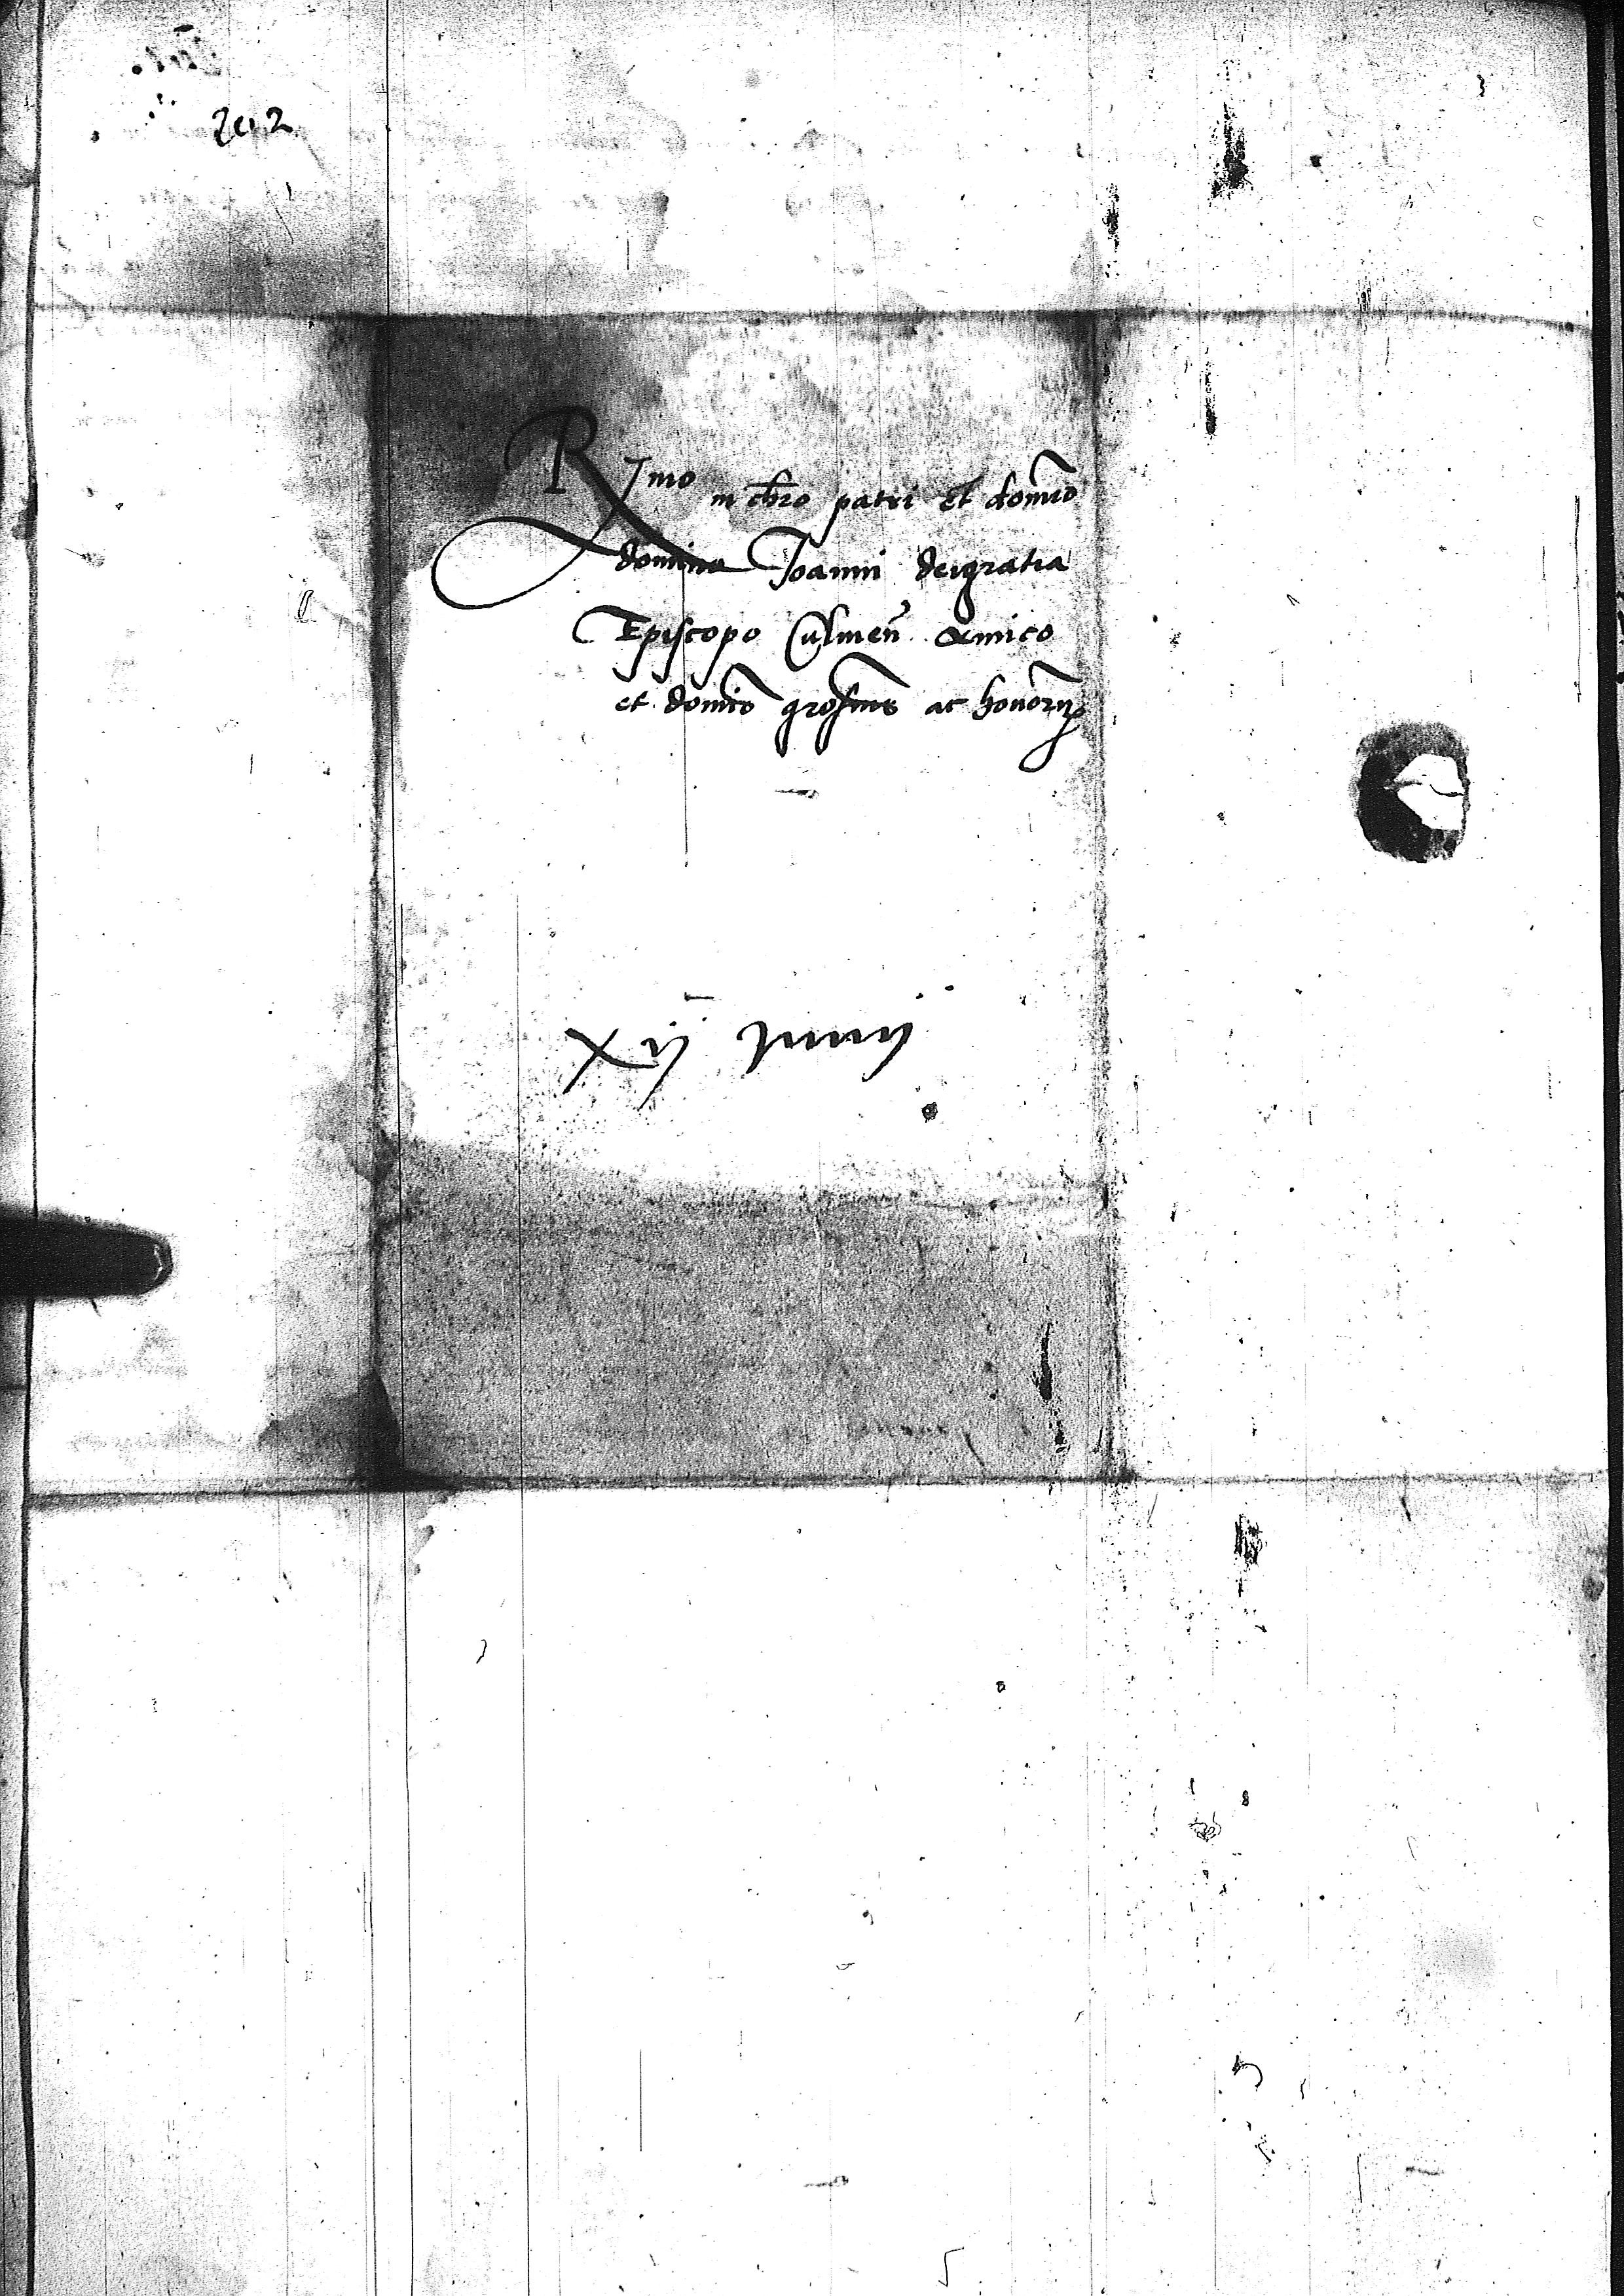 202
Rmo in chro patri et domino
domino Joanni dei gratia
Episcopo Culmen amico
et domino ac honoran
xij Junij